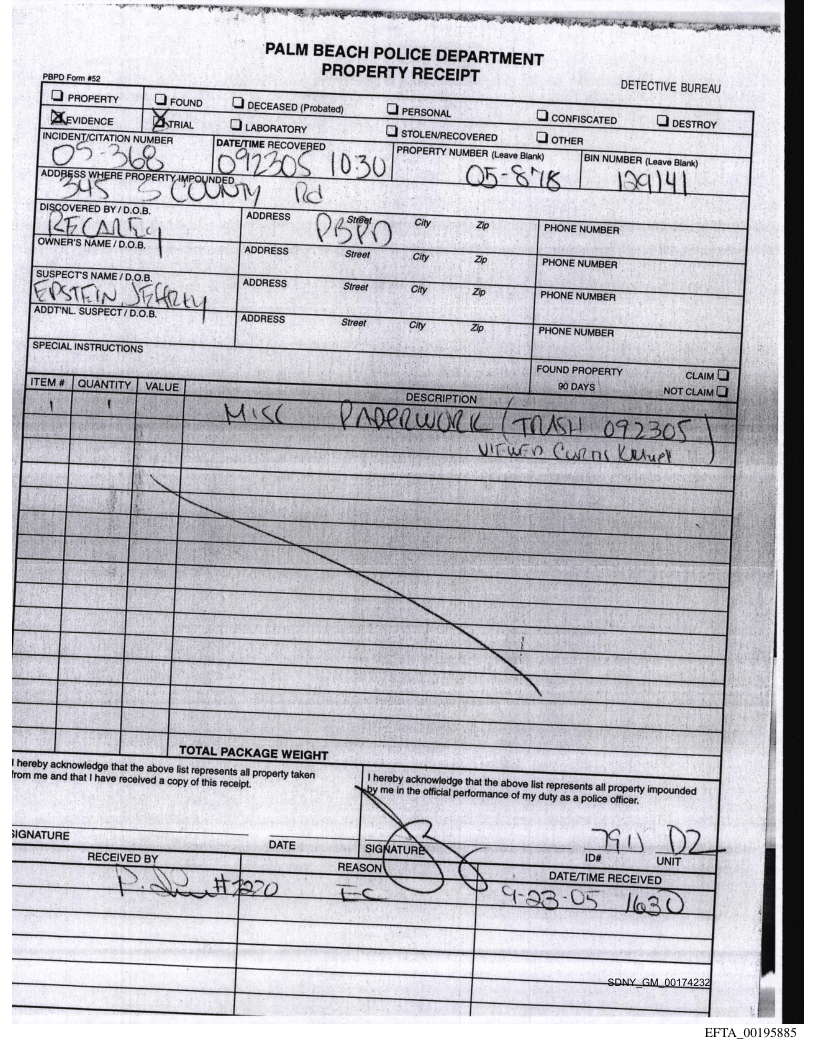 PALM BEACH POLICE DEPARTMENT
PROPERTY RECEIPT
PBPD Form #52
DETECTIVE BUREAU
PROPERTY FOUND DECEASED (Probated) PERSONAL CONFISCATED DESTROY
EVIDENCE TRIAL LABORATORY STOLEN/RECOVERED OTHER
INCIDENT/CITATION NUMBER DATE/TIME RECOVERED PROPERTY NUMBER (Leave Blank) BIN NUMBER (Leave Blank)
05-368 092305 1030 05-878 129141
ADDRESS WHERE PROPERTY IMPOUNDED
345 S COUNTY Rd
DISCOVERED BY / D.O.B. ADDRESS Street City Zip PHONE NUMBER
RECAREY PBPD
OWNER'S NAME / D.O.B. ADDRESS Street City Zip PHONE NUMBER
SUSPECT'S NAME / D.O.B. ADDRESS Street City Zip PHONE NUMBER
EPSTEIN, JEFFREY
ADDT'NL. SUSPECT / D.O.B. ADDRESS Street City Zip PHONE NUMBER
SPECIAL INSTRUCTIONS
FOUND PROPERTY CLAIM
90 DAYS NOT CLAIM
ITEM # QUANTITY VALUE DESCRIPTION
1 1 MISC PAPERWORK (TRASH 092305)
VIEWED
TOTAL PACKAGE WEIGHT
I hereby acknowledge that the above list represents all property taken
from me and that I have received a copy of this receipt.
I hereby acknowledge that the above list represents all property impounded
by me in the official performance of my duty as a police officer.
SIGNATURE DATE SIGNATURE ID# UNIT
D2
RECEIVED BY REASON DATE/TIME RECEIVED
#7270 EC 9-23-05 1630
SDNY_GM_00174232
EFTA_00195885